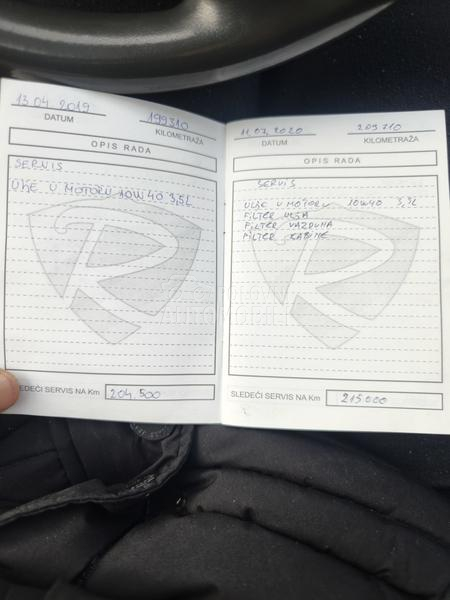 13.04.2019
199310
DATUM
KILOMETRAŽA
OPIS RADA
SERVIS
ULJE U MOTORU 10W40 3,5L
SLEDEĆI SERVIS NA Km
204.500
11.07.2020
209710
DATUM
KILOMETRAŽA
OPIS RADA
SERVIS
ULJE U MOTORU 10W40 3,3L
FILTER ULJA
FILTER VAZDUHA
FILTER KABINE
SLEDEĆI SERVIS NA Km
215000